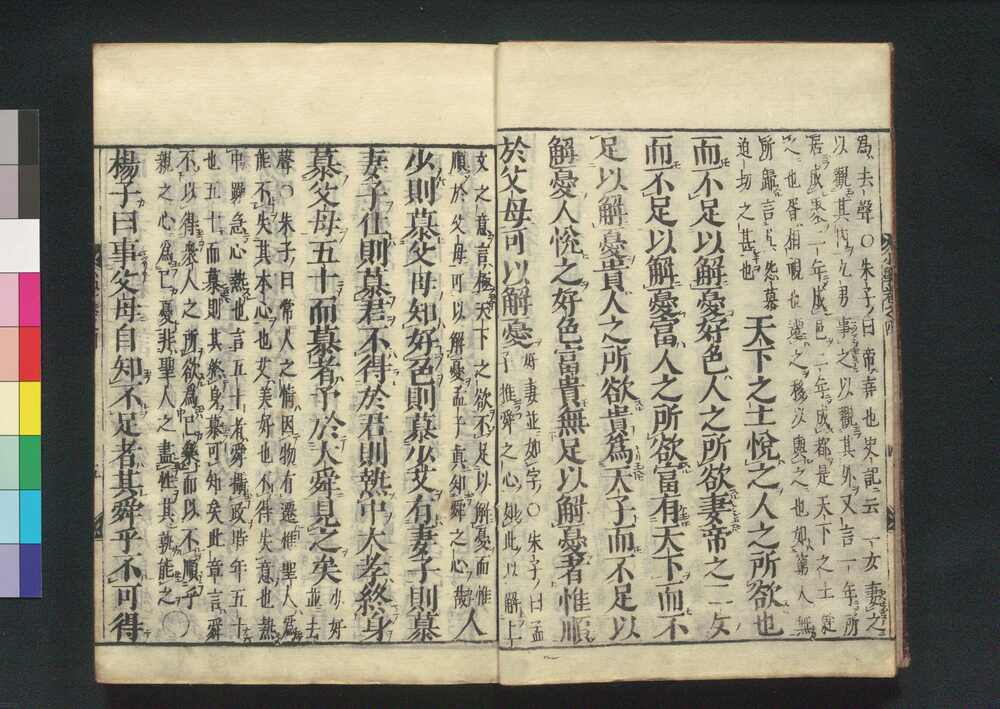 爲去聲○朱子曰帝堯也史記云二女妻之
以觀其内九男事之以觀其外又言一年所
居成聚二年成邑三年成都是天下之士就
之也胥相視也遷之移以與之也如窮人無
所歸言其怨慕
迫切之甚也
天下之士悅之人之所欲也
而不足以解憂好色人之所欲妻帝之二女
而不足以解憂富人之所欲富有天下而不
足以解憂貴人之所欲貴爲天子而不足以
解憂人悅之好色富貴無足以解憂者惟順
於父母可以解憂
好妻並如字○朱子曰孟
子推舜之心如此以解上
文之意言極天下之欲不足以解憂而惟
順於父母可以解憂孟子眞知舜之心哉
人
少則慕父母知好色則慕少艾有妻子則慕
妻子仕則慕君不得於君則熱中大孝終身
慕父母五十而慕者予於大舜見之矣
少好
並去
聲○朱子曰常人之情因物有遷惟聖人爲
能不失其本心也艾美好也不得失意也熱
中躁急心熱也言五十者舜攝政時年五十
也五十而慕則其終身慕可知矣此章言舜
不以得衆人之所欲爲己樂而以不順乎
親之心爲己憂非聖人之盡性其孰能之○
楊子曰事父母自知不足者其舜乎不可得